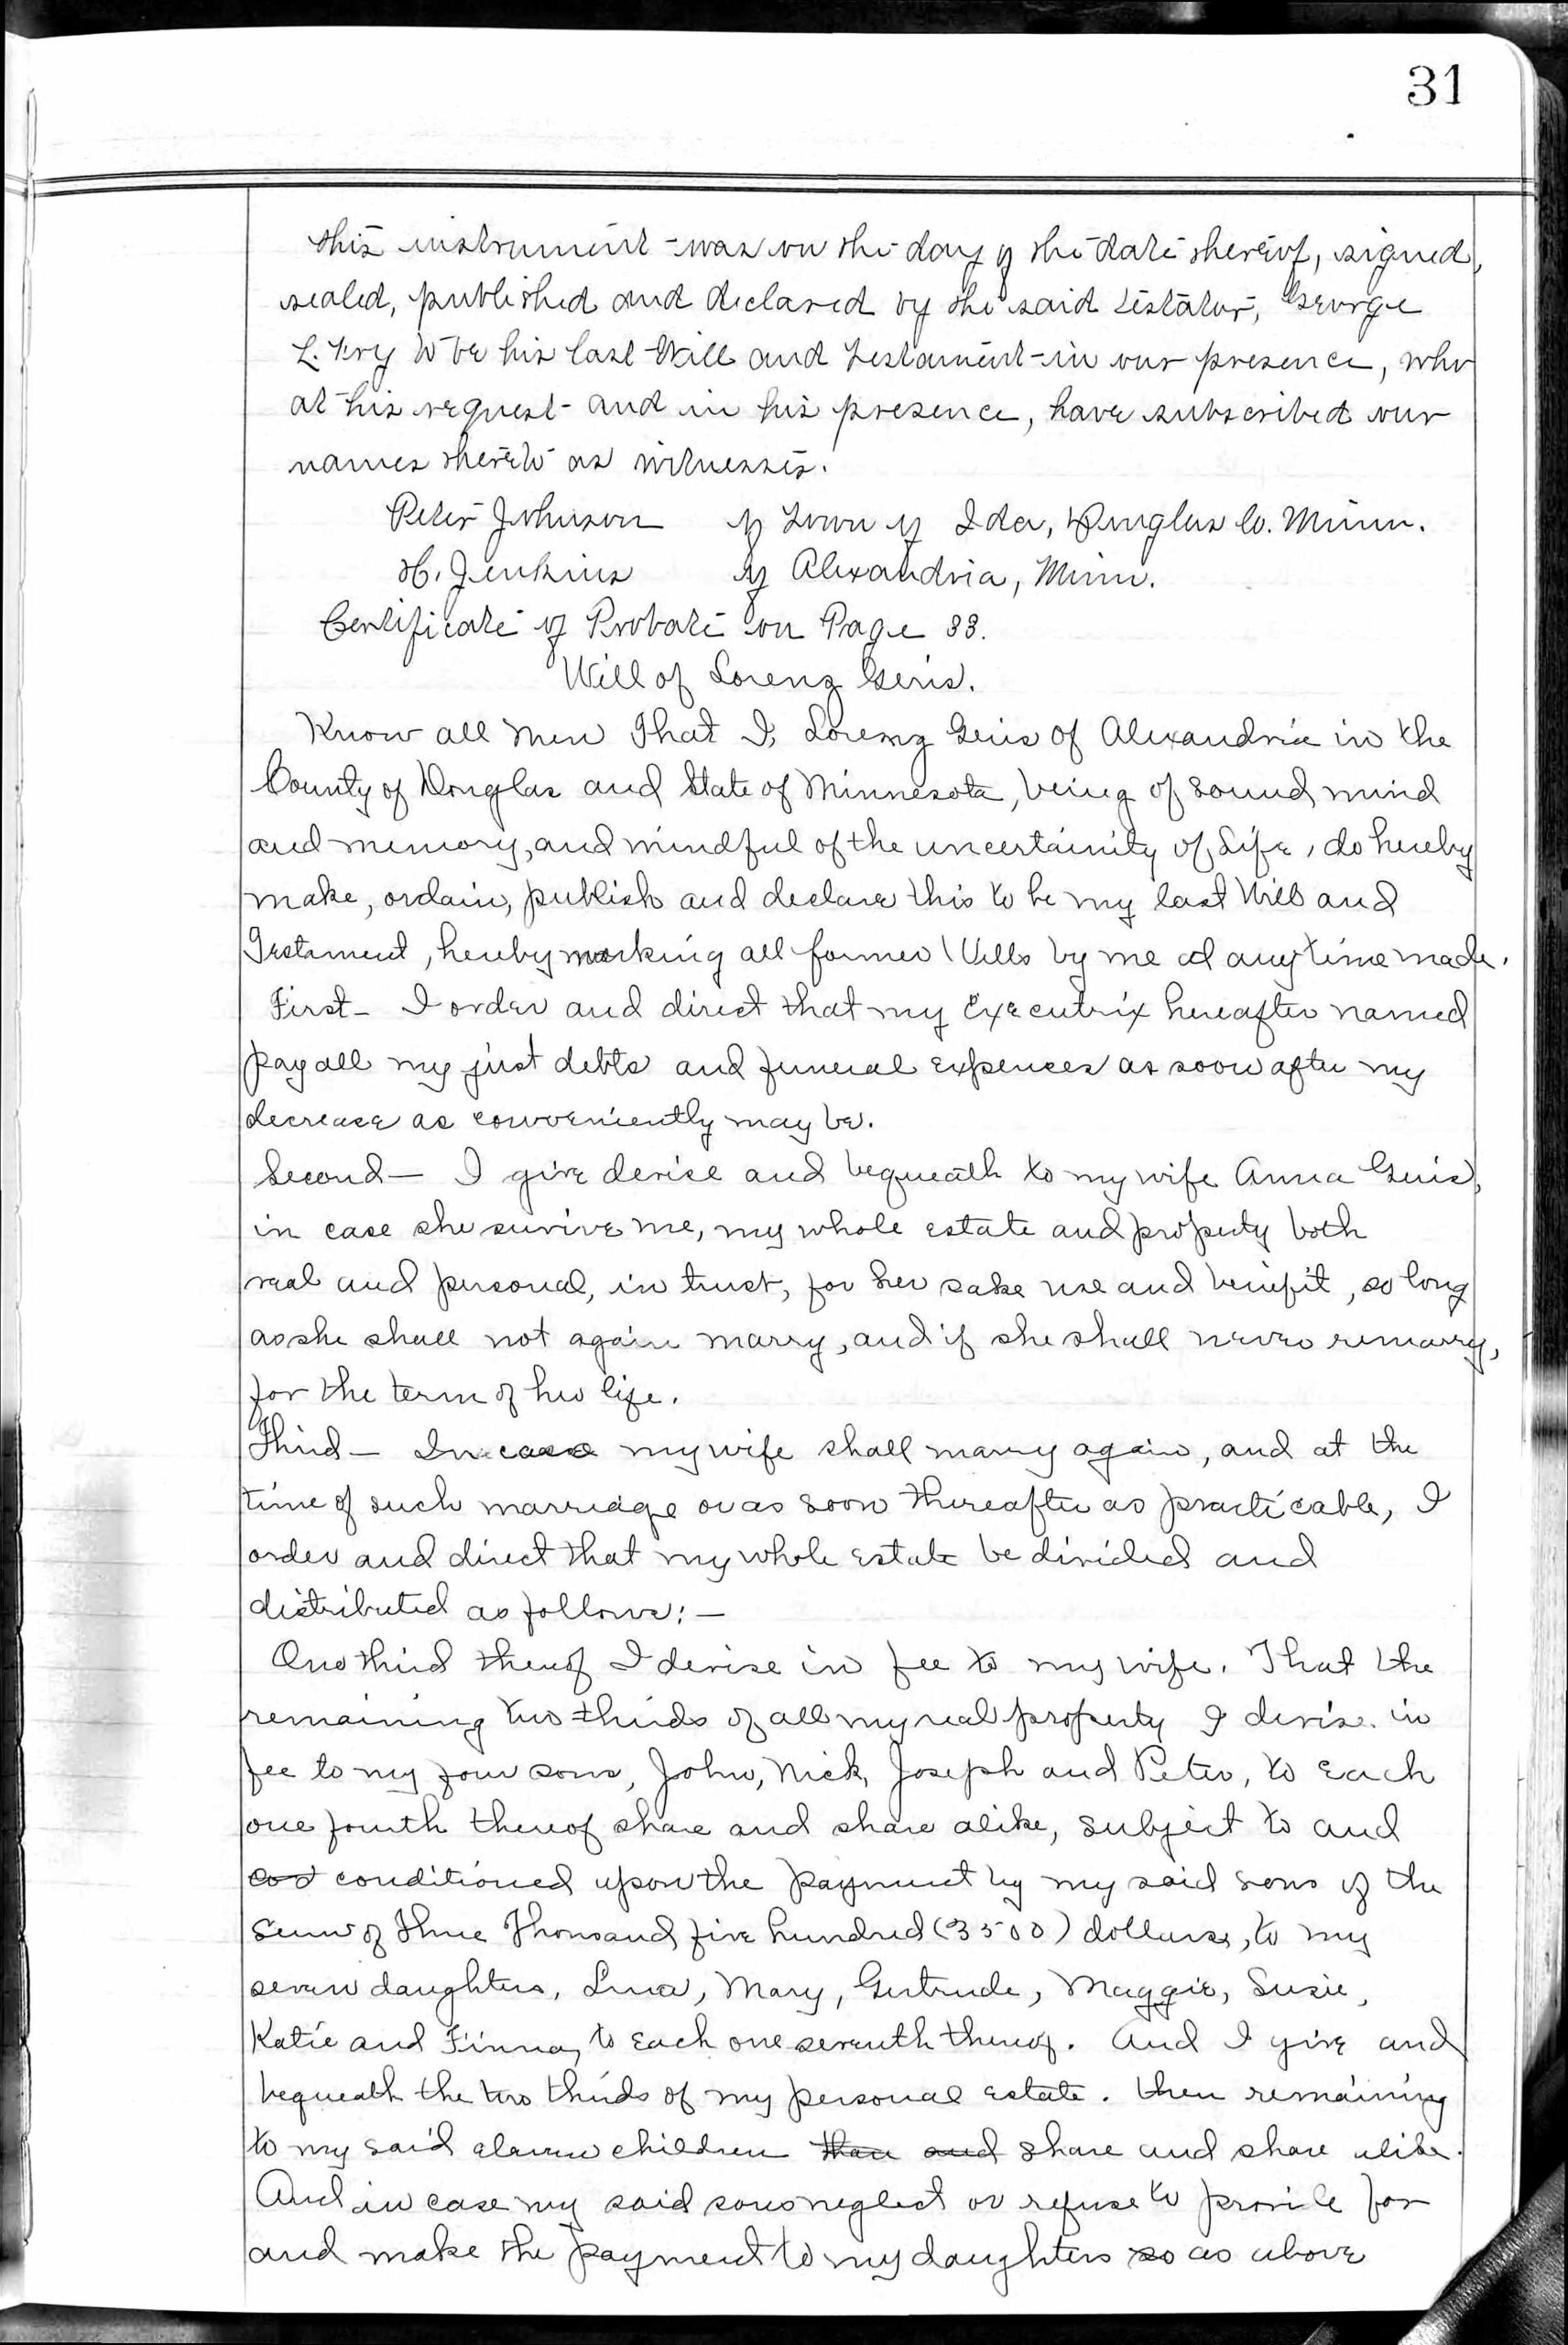 31
this instrument was on the day of the date thereof, signed,
sealed, published and declared by the said testator, George
L. Fry to be his last Will and testament in our presence, who
at his request and in his presence, have subscribed our
names thereto as witnesses.
Peter Johnson of Town of Ida, Douglas Co. Minn.
H. Jenkins of Alexandria, Minn.
Certificate of Probate on Page 33.
Will of Lorenz Geris.
Know all Men That I, Lorenz Geris of Alexandria in the
County of Douglas and State of Minnesota, being of sound mind
and memory, and mindful of the uncertainity of Life, do hereby
make, ordain, publish and declare this to be my last Will and
Testament, hereby all former Wills by me at any time made.
First - I order and direct that my Executrix hereafter named
pay all my just debts and funeral expences as soon after my
decrease as conveniently may be.
Second - I give devise and bequeath to my wife Anna Geris,
in case she survive me, my whole estate and property both
real and personal, in trust, for her sake use and benifit, so long
as she shall not again marry, and if she shall never remarry,
for the term of her life.
Third - In case my wife shall marry again, and at the
time of such marriage or as soon thereafter as practicable, I
order and direct that my whole estate be divided and
distributed as follows: -
One third thereof I devise in fee to my wife. That the
remaining two thirds of all my real property I devise in
fee to my four sons, John, Nick, Joseph and Peter, to each
one fourth thereof share and share alike, subject to and
conditioned upon the payment by my said sons of the
sum of three Thousand five hundred (3500) dollars, to my
seven daughters, Lena, Mary, Gertrude, Maggie, Susie,
Katie and Finna, to each one seventh thereof. And I give and
bequeath the two thirds of my personal estate. then remaining
to my said eleven children than and share and share alike.
And in case my said sons neglect or refuse to provide for
and make the payment to my daughters so as above